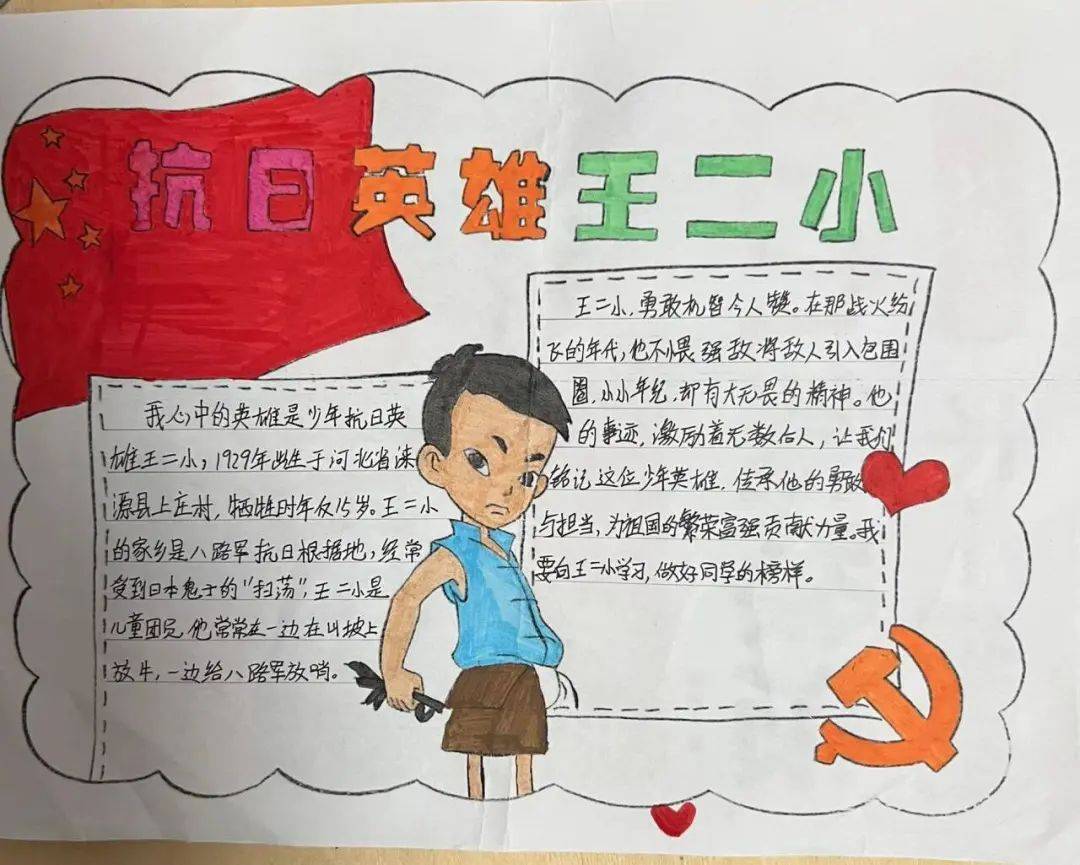 抗日英雄王二小
我心中的英雄是少年抗日英
雄王二小，1929年出生于河北省涞
源县上庄村，牺牲时年仅15岁。王二小
的家乡是八路军抗日根据地，经常
受到日本鬼子的“扫荡”，王二小是
儿童团员，他常常在一边在山坡上
放牛，一边给八路军放哨。
王二小，勇敢机智令人赞。在那战火纷
飞的年代，他不惧强敌将敌人引入包围
圈，小小年纪，却有大无畏的精神。他
的事迹，激励着无数后人，让我们
铭记这位少年英雄，传承他的勇敢
与担当，为祖国的繁荣富强贡献力量。我
要向王二小学习，做好同学的榜样。